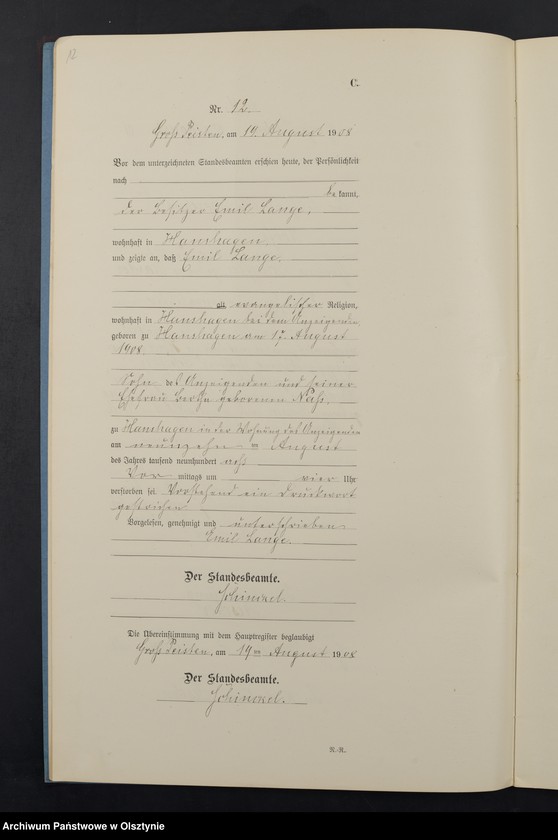 12
C.
Nr. 12.
Groß Peisten, am 19. August 1908
Vor dem unterzeichneten Standesbeamten erschien heute, der Persönlichkeit
nach
be kannt,
der Besitzer Emil Lange,
wohnhaft in Hanshagen
und zeigte an, daß Emil Lange,
alt, evangelischer Religion,
wohnhaft in Hanshagen bei dem Anzeigenden
geboren zu Hanshagen am 17. August
1908
Sohn des Anzeigenden und seiner
Ehefrau Bertha geborenen
zu Hanshagen in der Wohnung des Anzeigenden
am neunzehn ten August
des Jahres tausend neunhundert acht
Vor mittags um vier Uhr
verstorben sei. Vorstehend ein Druckwort
gestrichen.
Vorgelesen, genehmigt und unterschrieben
Emil Lange.
Der Standesbeamte.
Schinckel.
Die Übereinstimmung mit dem Hauptregister beglaubigt
Groß Peisten, am 19ten August 1908
Der Standesbeamte.
Schinckel.
N.-R.
Archiwum Państwowe w Olsztynie